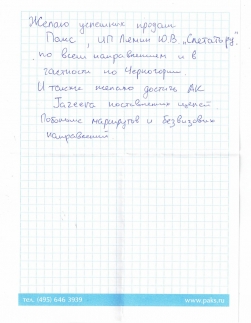 Желаю успешных продаж
Пакс, ИП Лямин Ю.В. „Слетать.ру"
по всем направлениям и в
частности по Черногории
И также желаю достичь АК
Jazeera поставленных целей
Побольше маршрутов и безвизовых
направлений
тел. (495) 646 3939
www.paks.ru